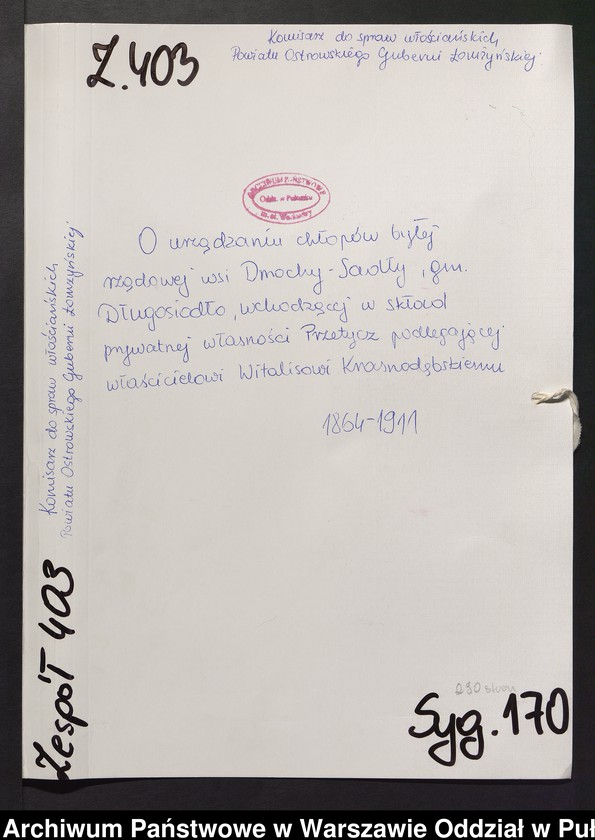 Z.403
Komisarz do spraw włościańskich
Powiatu Ostrowskiego Guberni Łomżyńskiej
ARCHIWUM PAŃSTWOWE
Oddz. w Pułtusku
m.st. Warszawy
O urządzaniu chłopów byłej
rządowej wsi Dmochy-Sadły, gm.
Długosiodło, wchodzącej w skład
prywatnej własności Przetycz podlegającej
właścicielowi Witalisowi Krasnodębskiemu
1864-1911
Komisarz do spraw włościańskich
Powiatu Ostrowskiego Guberni Łomżyńskiej
Zespół 403
290 stron
Syg. 170
Archiwum Państwowe w Warszawie Oddział w Puł